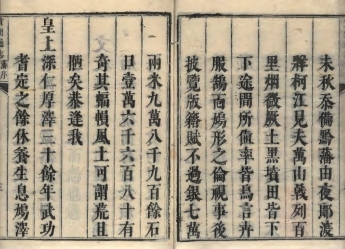 未秋忝備黔藩由夜郎渡
牂柯江見夫萬山義列百
里烟微厥土黑墳田皆下
下途間所値率皆鳥言卉
服鵠面鳩形之倫視事後
披覽版籍賦不過銀七萬
兩米九萬八千九百餘石
口壹萬六千六百八十有
奇其幅幀風土可謂荒且
陋矣恭逢我
皇上深仁厚澤三十餘年武功
耆定之餘休養生息澤